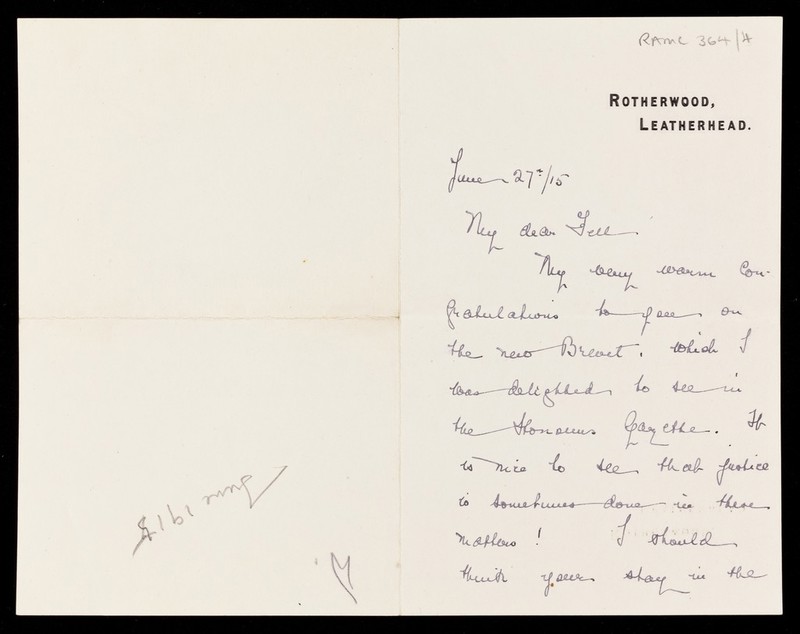 RAMC 364/4
ROTHERWOOD,
LEATHERHEAD.
June 27th/15
My dear Fell
My very warm Con-
gratulations to you on
the new Brevet, which I
was delighted to see in
the Honours Gazette. It
is nice to see that justice
is sometimes done in these
matters! I should
think your stay in the
June 1915